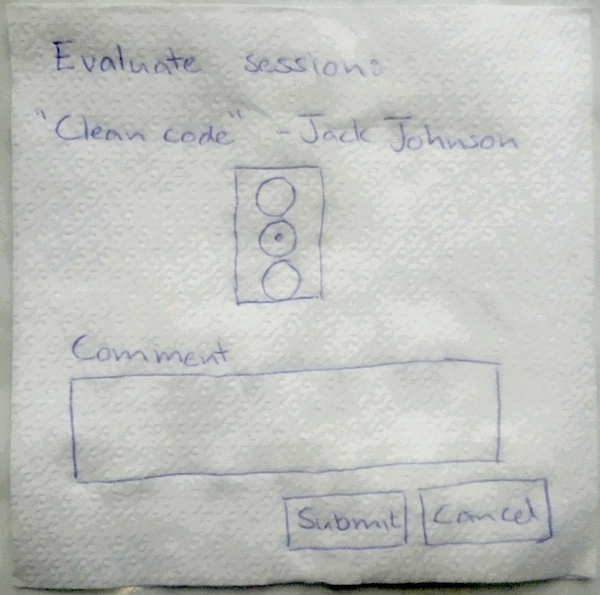 Evaluate session:
"Clean code" - Jack Johnson
Comment
Submit Cancel